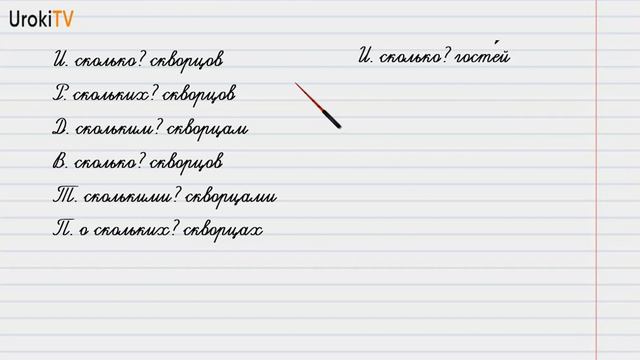 UrokiTV
И. сколько? скворцов
Р. скольких? скворцов
Д. скольким? скворцам
В. сколько? скворцов
Т. сколькими? скворцами
П. о скольких? скворцах
И. сколько? госте́й